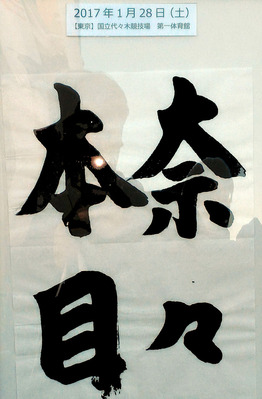 2017年1月28日(土)
【東京】国立代々木競技場　第一体育館
奈々
本目